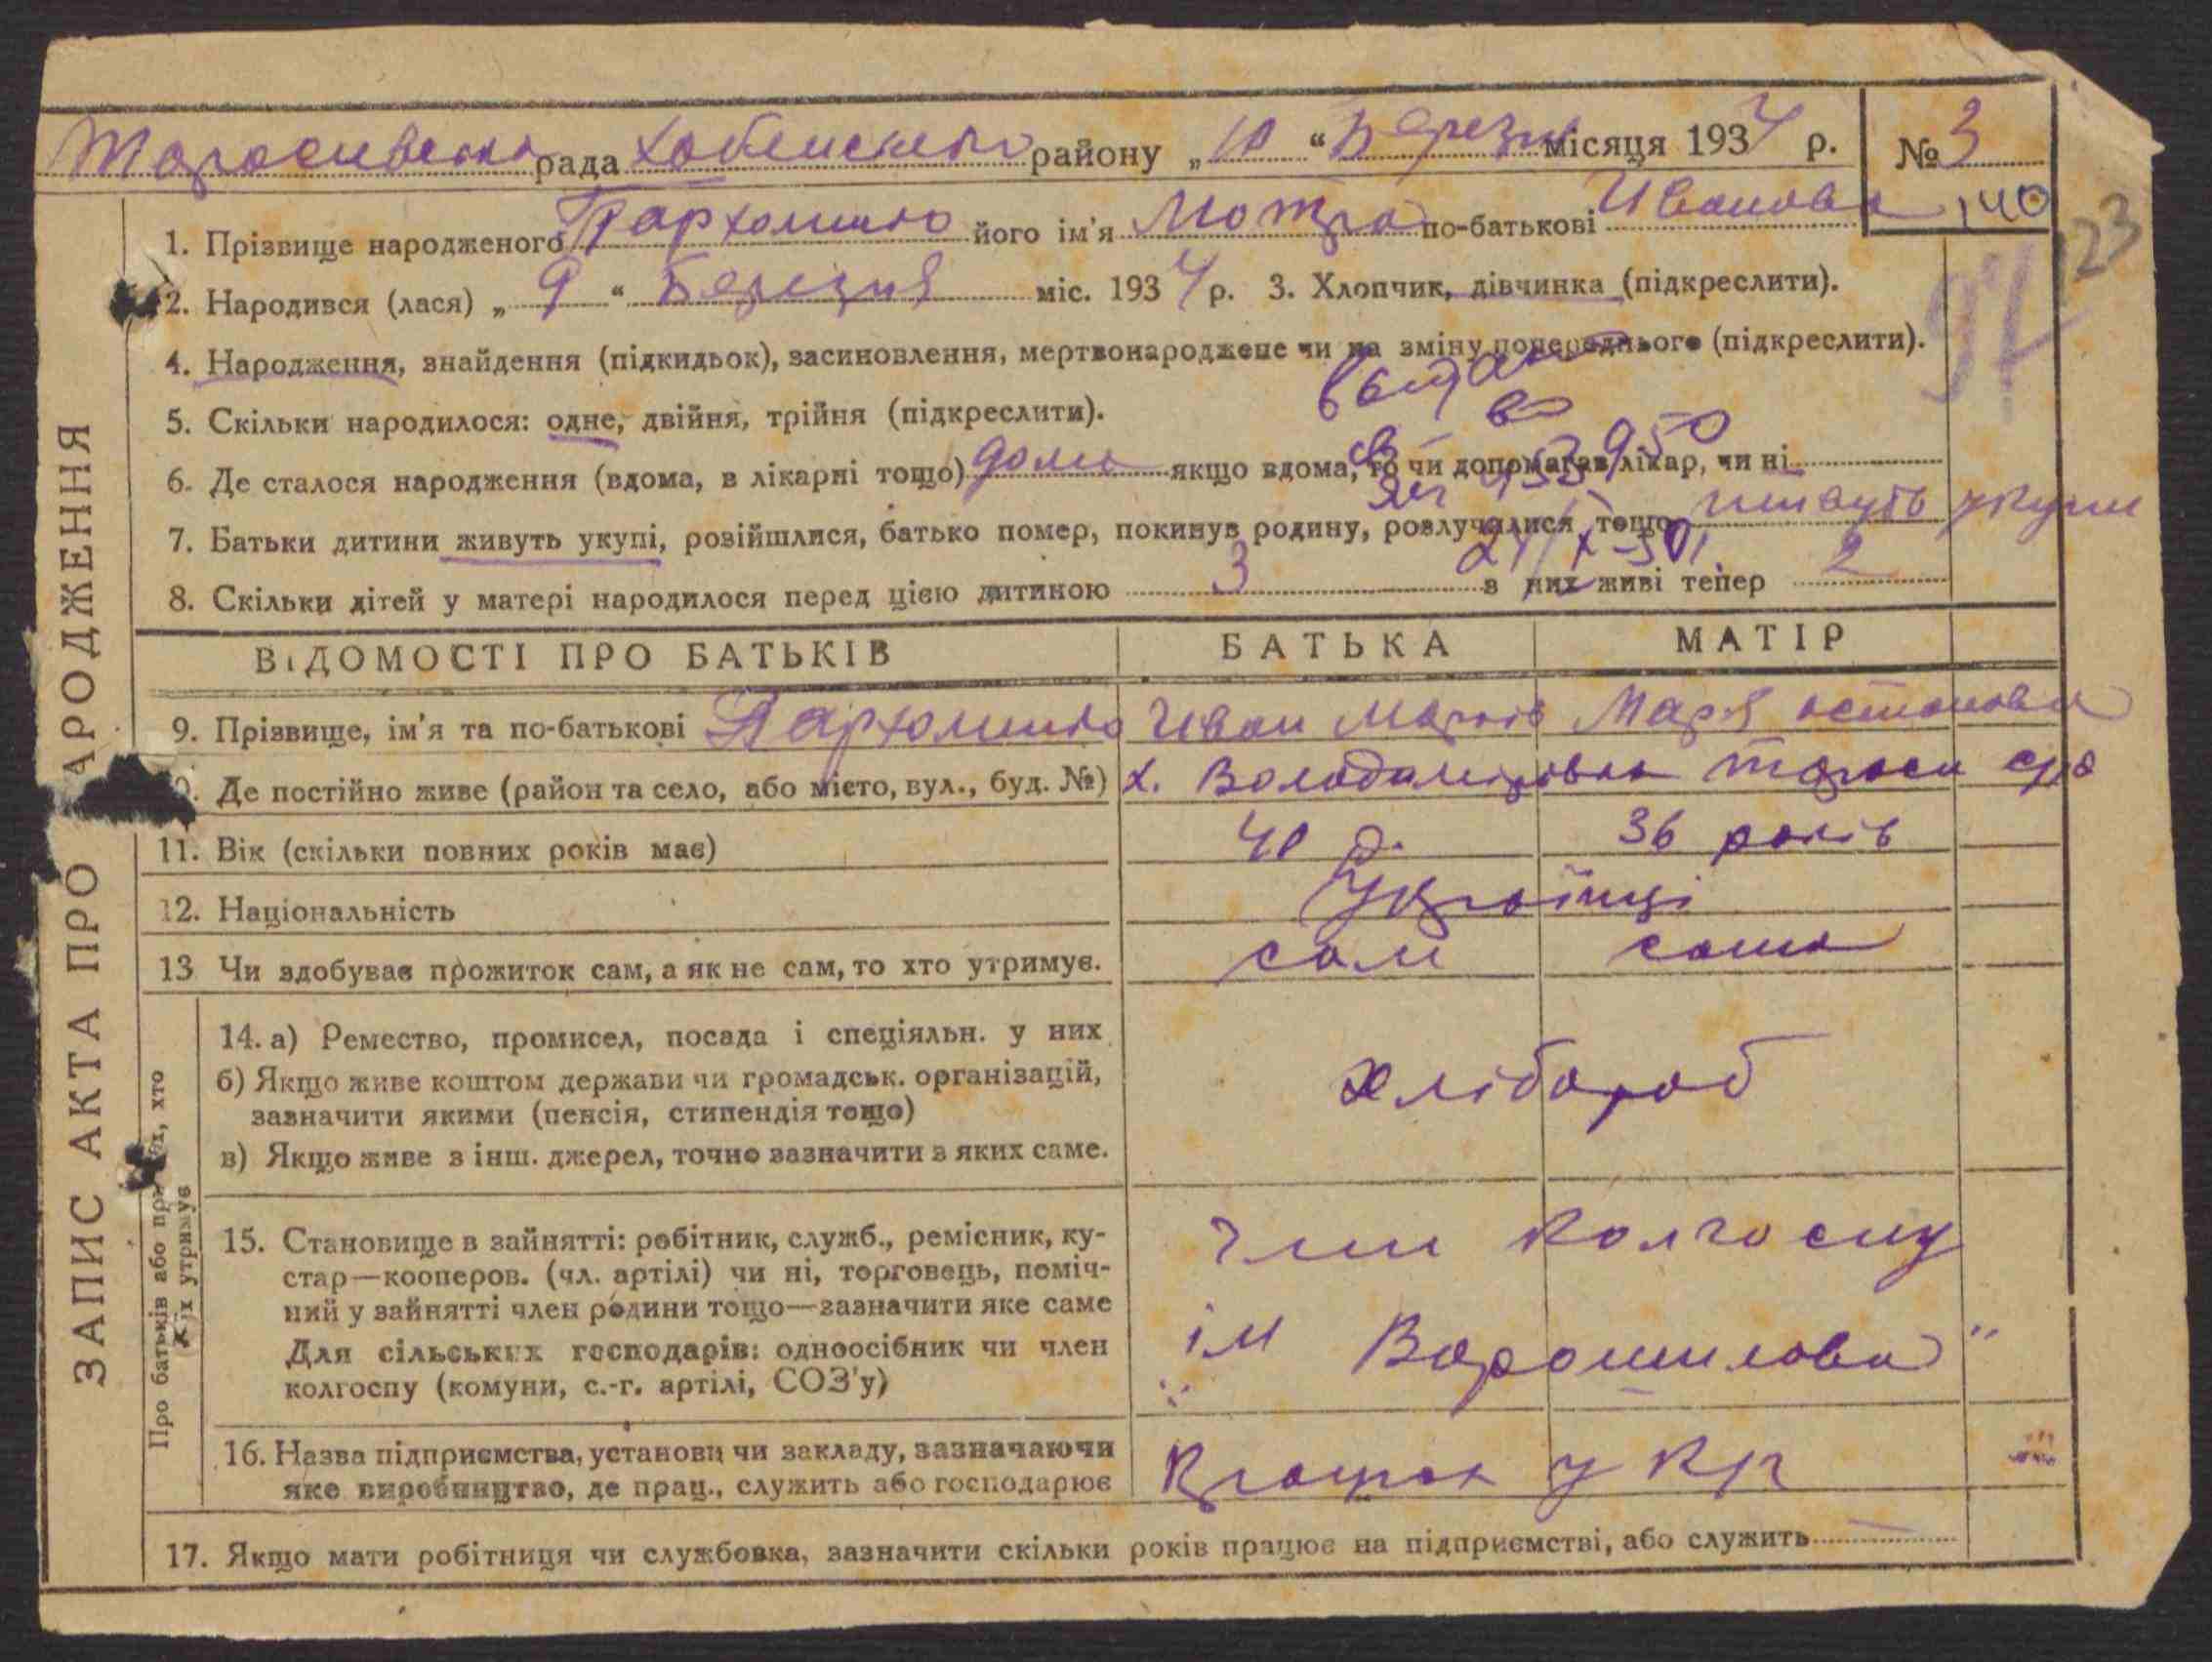 Тарасивська рада Хабенского району „10“ Березня місяця 1934 р. № 3
1. Прізвище народженого Пархоменко його ім'я Мотря по-батькові Иванова 140
123
2. Народився (лася) „9“ Березня міс. 1934 р. 3. Хлопчик, дівчинка (підкреслити).
4. Народження, знайдення (підкидьок), засиновлення, мертвонароджене чи на зміну попереднього (підкреслити).
5. Скільки народилося: одне, двійня, трійня (підкреслити).
6. Де сталося народження (вдома, в лікарні тощо) дома якщо вдома, то чи допомагав лікар, чи ні
7. Батьки дитини живуть укупі, розійшлися, батько помер, покинув родину, розлучилися тощо живуть укупи
8. Скільки дітей у матері народилося перед цією дитиною 3 з них живі тепер 2
ВІДОМОСТІ ПРО БАТЬКІВ БАТЬКА МАТІР
9. Прізвище, ім'я та по-батькові Пархоменко Иван Марків Марія остапова
10. Де постійно живе (район та село, або місто, вул., буд. №) х. Володимирівка Тараси с/ра
11. Вік (скільки повних років має) 40 р. 36 років
12. Національність Українці
13 Чи здобуває прожиток сам, а як не сам, то хто утримує. сам сама
14. а) Ремество, промисел, посада і спеціяльн. у них
б) Якщо живе коштом держави чи громадськ. організацій,
зазначити якими (пенсія, стипендія тощо)
в) Якщо живе з інш. джерел, точно зазначити з яких саме.
хлібороб
15. Становище в зайнятті: робітник, служб., ремісник, ку-
стар—кооперов. (чл. артілі) чи ні, торговець, поміч-
ний у зайнятті член родини тощо—зазначити яке саме
Для сільських господарів: одноосібник чи член
колгоспу (комуни, с.-г. артілі, СОЗ'у)
Член колгоспу
ім „Ворошилова“
16. Назва підприємства, установи чи закладу, зазначаючи
яке виробництво, де прац., служить або господарює
Працює у кг
17. Якщо мати робітниця чи службовка, зазначити скільки років працює на підприємстві, або служить —
ЗАПИС АКТА ПРО НАРОДЖЕННЯ
Про батьків або про тих, хто
їх утримує